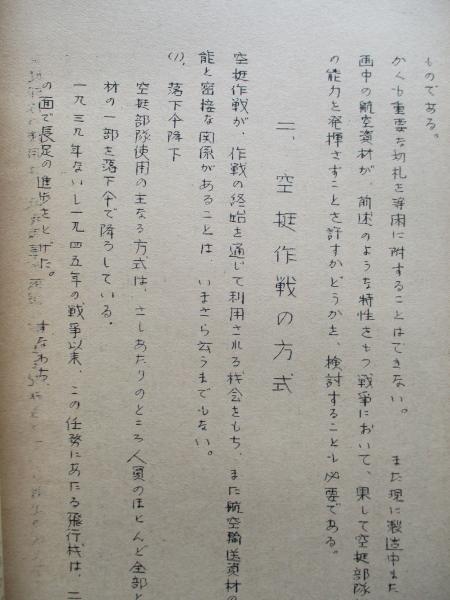 ものである。
かくも重要な切札を等閑に附することはできない。　　また現に製造中また
画中の航空資材が、前述のような特性をもつ戦争において、果して空挺部隊
の能力を発揮さすことを許すかどうかを、検討することも必要である。
二、空挺作戦の方式
空挺作戦が、作戦の終始を通じて利用される機会をもち、また航空輸送資材の
能と密接な関係があることは、いまさら云うまでもない。
(1)、落下傘降下
空挺部隊使用の主なる方式は、さしあたりのところ人員のほとんど全部と
材の一部を落下傘で降ろしている。
一九三九年ないし一九四五年の戦争以来、この任務にあたる飛行機は、二
の面で長足の進歩をとげた。　すなわち、